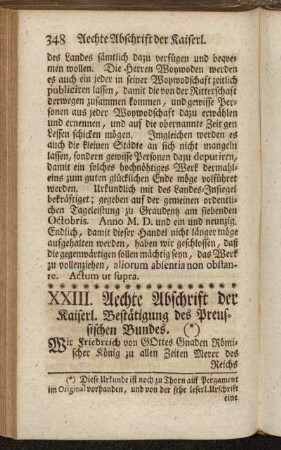 348 Aechte Abschrift der Kaiserl.
des Landes sämtlich dazu verfügen und beqve-
men wollen. Die Herren Woywoden werden
es auch ein jeder in seiner Woywodschaft zeitlich
publiciren lassen, damit die von der Ritterschaft
derwegen zusammen kommen, und gewisse Per-
sonen aus jeder Woywodschaft dazu erwählen
und ernennen, und auf die obernannte Zeit gen
Lessen schicken mögen. Imgleichen werden es
auch die kleinen Städte an sich nicht mangeln
lassen, sondern gewisse Personen dazu deputiren,
damit ein solches hochnöhtiges Werk dermahl-
eins zum guten glücklichen Ende möge vollführet
werden. Urkundlich mit des Landes-Insiegel
bekräftiget; gegeben auf der gemeinen ordentli-
chen Tageleistung zu Graudentz am siebenden
Octobris. Anno M. D. und ein und neunzig.
Endlich, damit dieser Handel nicht länger möge
aufgehalten werden, haben wir geschlossen, daß
die gegenwärtigen sollen mächtig seyn, das Werk
zu vollenziehen, aliorum absentia non obstan-
te. Actum ut supra.
XXIII. Aechte Abschrift der
Kaiserl. Bestätigung des Preus-
sischen Bundes. (*)
Wir Friedreich von GOttes Gnaden Römi-
scher König zu allen Zeiten Merer des
Reichs
(*) Diese Urkunde ist noch zu Thorn auf Pergament
im Original vorhanden, und von der sehr leserl. Urschrift
eine